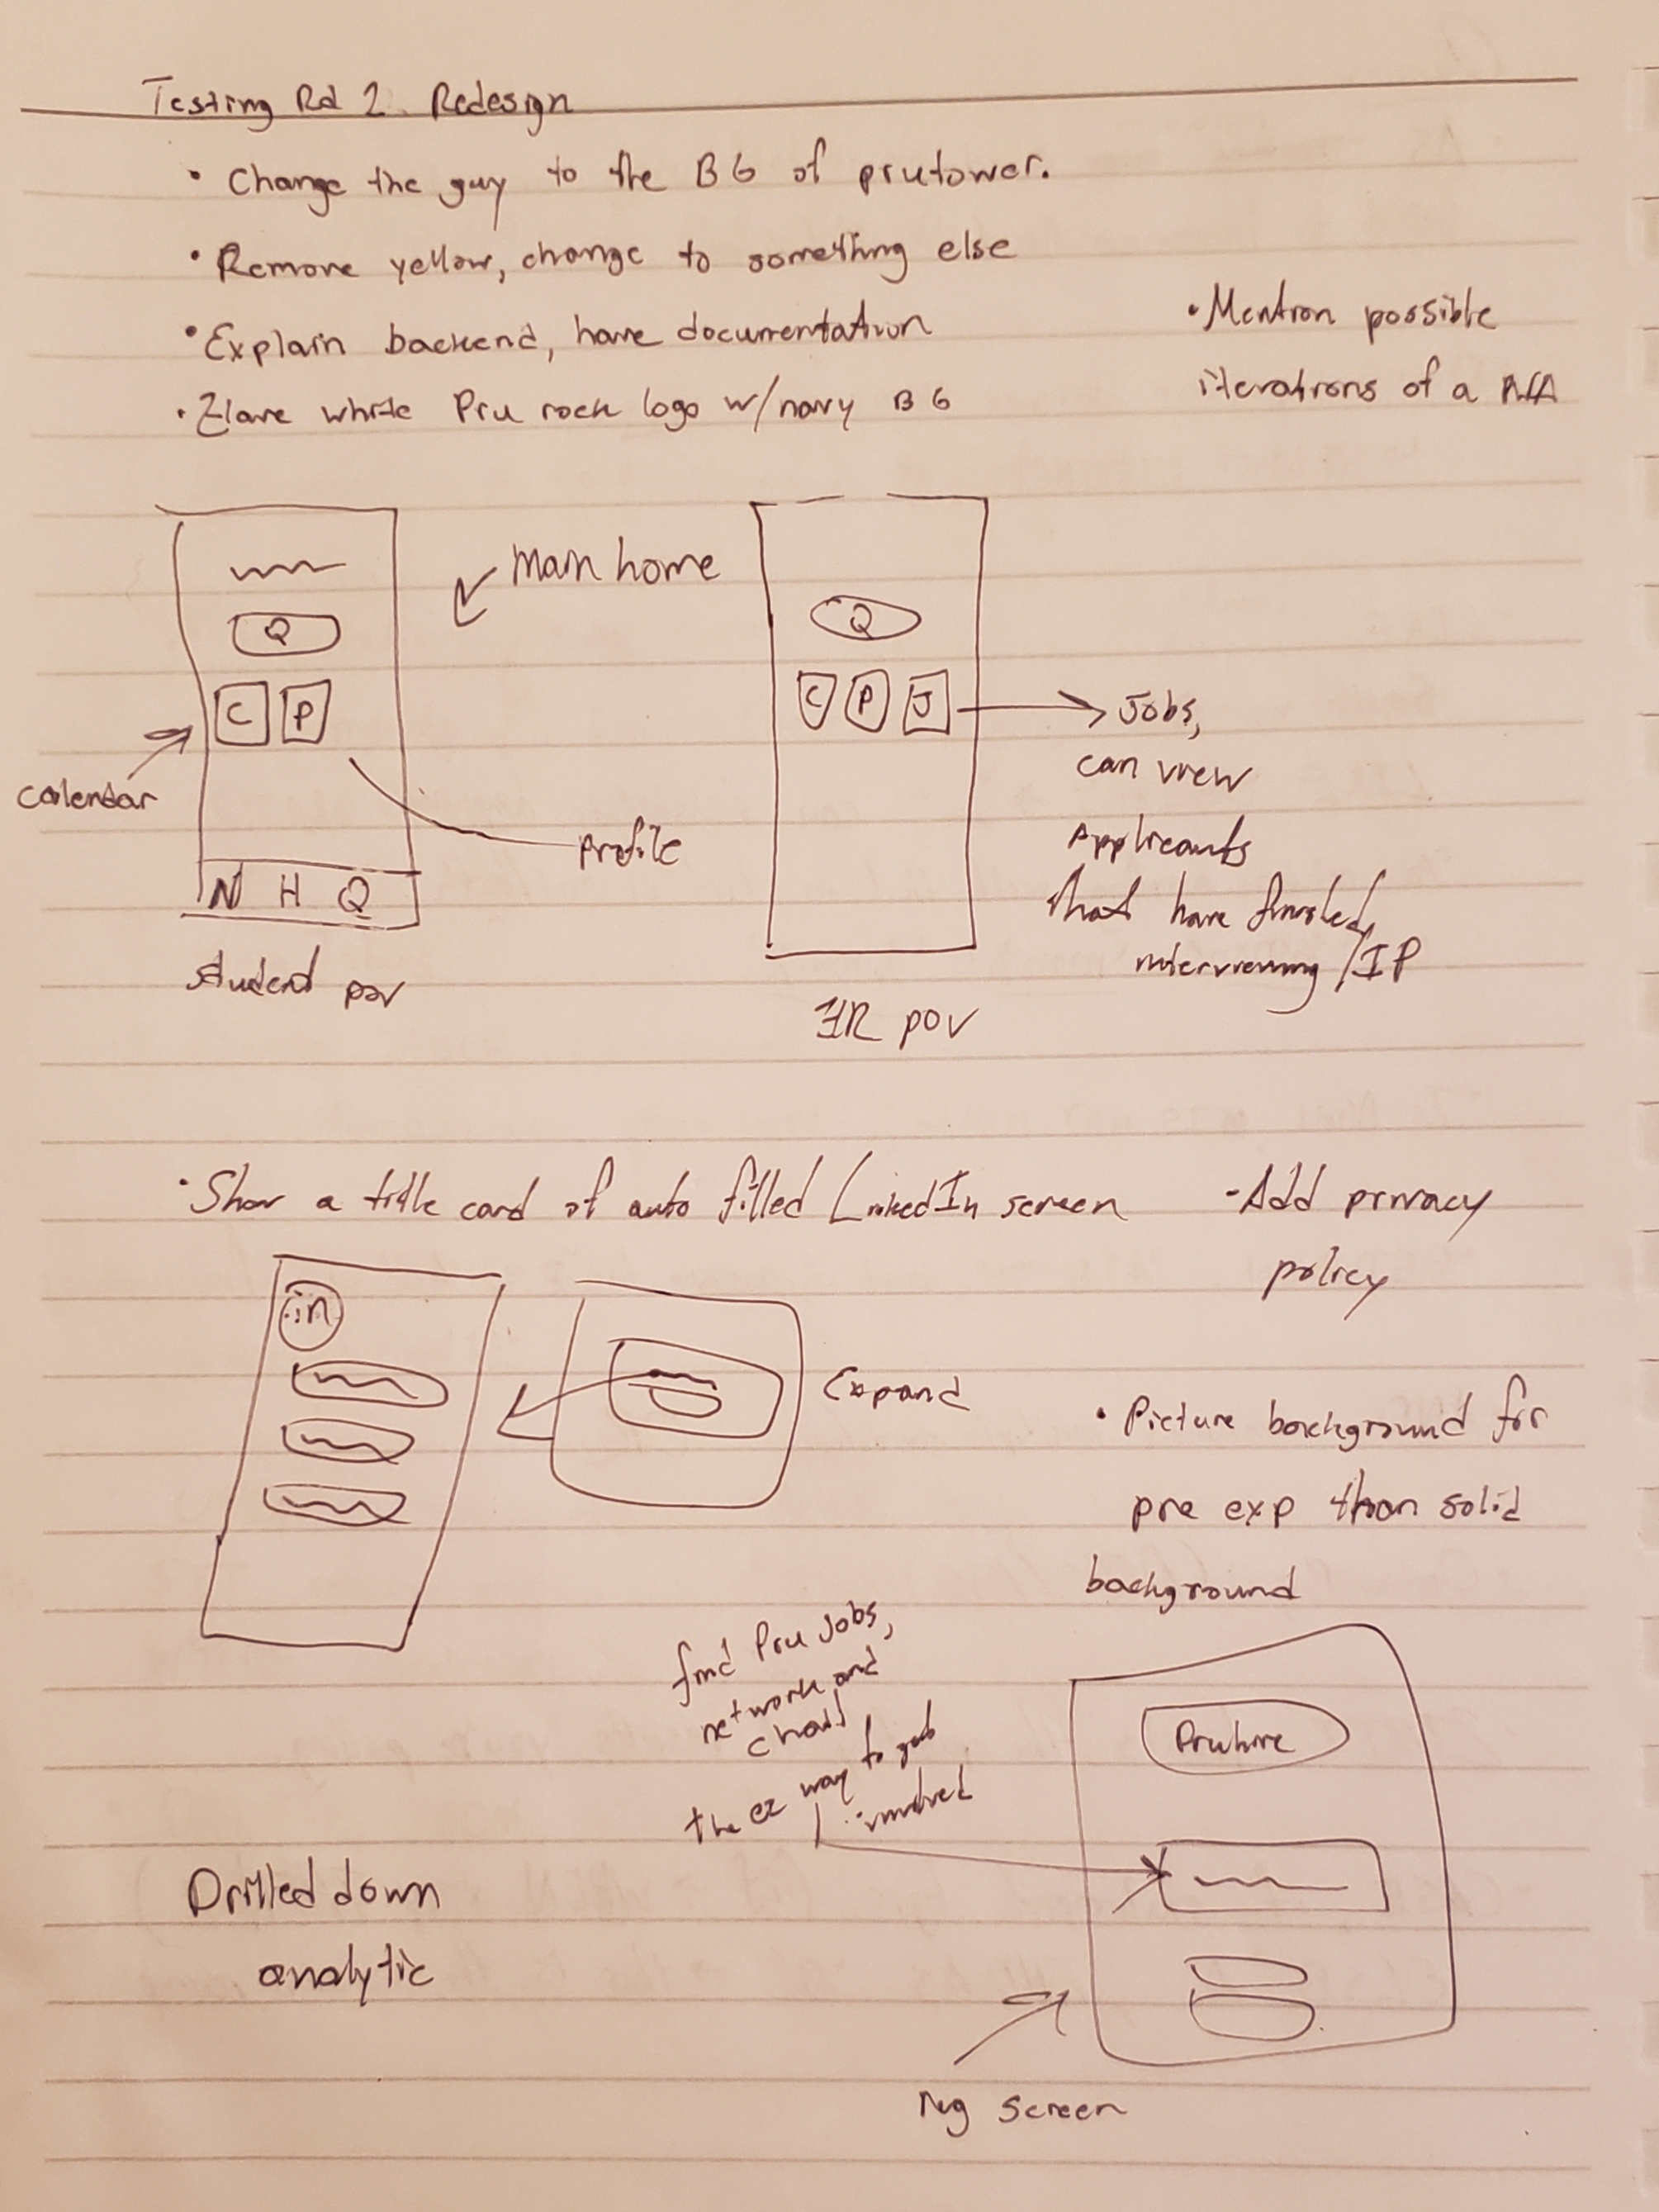 Testing Rd 2 Redesign
• Change the guy to the BG of prutower.
• Remove yellow, change to something else
• Explain backend, have documentation
• Have white Pru rock logo w/navy BG
• Mention possible
iterations of a
Main home
Q
C P
calendar
profile
N H Q
student pov
Q
C P J
Jobs,
can view
Applicants
that have finished
interviewing/IP
HR pov
• Show a title card of auto filled LinkedIn screen
- Add privacy
policy
in
Expand
• Picture background for
pre exp than solid
background
find Pru Jobs,
network and
chat!
the ez way to get
involved
Pruhire
Drilled down
analytic
Reg screen